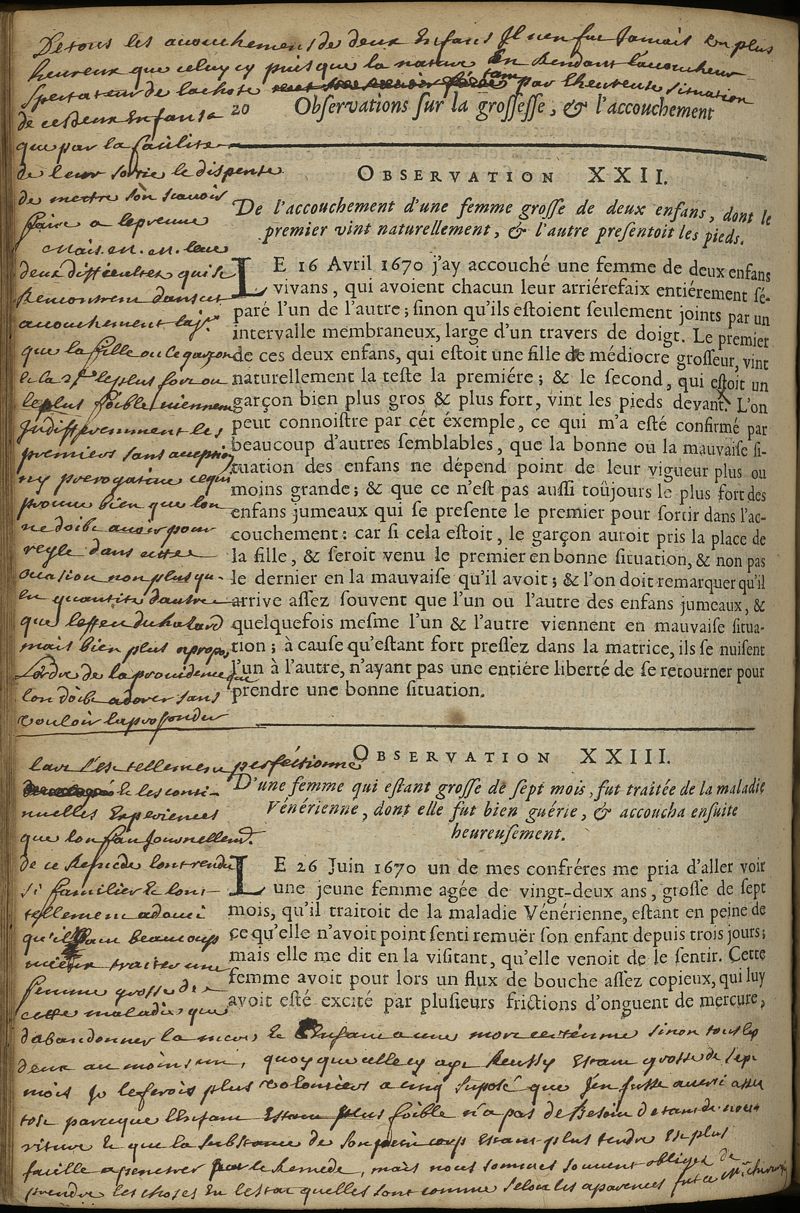 De tous les acouchemens de deux Enfans Il n'en fut Jamais un plus
heureux que celuy cy puis que la nature En Rendant l'acoucheur
Spectateur de la chose par l'heureuse situation
de ces deux Enfans a
que par la facilite
de leur sortie le dispente
de mettre son scavoir
faire a lepreuve
Mais en
deux difficultez qui se
Rencontrent dans cet
acouchement la
que la fille ou le garçon
le plus fort ou
le plus foible viennent
Indifferemment les
premiers sans acception
ny prerogative ce qui
prouve bien que lon
ne doibt avoir pour
reigle dans cette
ocasion non plus qu-
en quantité dautre
que leffect du hazard
mais bien plus apropos
Lordre de la providence que
lon doibt adorer sans
vouloir laprofondir
20 Observations sur la grossesse, & l'accouchement
OBSERVATION XXII.
De l'accouchement d'une femme grosse de deux enfans, dont le
premier vint naturellement, & l'autre presentoit les pieds.
LE 16 Avril 1670 j'ay accouché une femme de deux enfans
vivans, qui avoient chacun leur arriérefaix entiérement sé-
paré l'un de l'autre; sinon qu'ils estoient seulement joints par un
intervalle membraneux, large d'un travers de doigt. Le premier
de ces deux enfans, qui estoit une fille de médiocre grosseur, vint
naturellement la teste la premiére; & le second, qui estoit un
garçon bien plus gros & plus fort, vint les pieds devant. L'on
peut connoistre par cét éxemple, ce qui m'a esté confirmé par
beaucoup d'autres semblables, que la bonne ou la mauvaise si-
tuation des enfans ne dépend point de leur vigueur plus ou
moins grande; & que ce n'est pas aussi toûjours le plus fort des
enfans jumeaux qui se presente le premier pour sortir dans l'ac-
couchement: car si cela estoit, le garçon auroit pris la place de
la fille, & seroit venu le premier en bonne situation, & non pas
le dernier en la mauvaise qu'il avoit; & l'on doit remarquer qu'il
arrive assez souvent que l'un ou l'autre des enfans jumeaux, &
quelquefois mesme l'un & l'autre viennent en mauvaise situa-
tion; à cause qu'estant fort pressez dans la matrice, ils se nuisent
l'un à l'autre, n'ayant pas une entiére liberté de se retourner pour
prendre une bonne situation.
OBSERVATION XXIII.
D'une femme qui estant grosse de sept mois, fut traitée de la maladie
Vénérienne, dont elle fut bien guérie, & accoucha ensuite
heureusement.
LE 26 Juin 1670 un de mes confréres me pria d'aller voir
une jeune femme agée de vingt-deux ans, grosse de sept
mois, qu'il traitoit de la maladie Vénérienne, estant en peine de
ce qu'elle n'avoit point senti remuër son enfant depuis trois jours;
mais elle me dit en la visitant, qu'elle venoit de le sentir. Cette
femme avoit pour lors un flux de bouche assez copieux, qui luy
avoit esté excité par plusieurs frictions d'onguent de mercure,
lart s'est tellement perfectionne
et les conti-
nuelles Experiences
que lon fait Journellemt.
de ce Remede lont rendu
si familier et lont
tellement adouci
qu'il beaucoup
mieux traiter une
femme grosse de
cette maladie, que
d'abandonner la mere, et l'Enfant a une mort certeinne sinon tous les
deux au moins un, quoy que celle cy aye Reussy Estant grosse de sept
mois Je le ferois plus volontiers a cinq suposé que Jen fusse averti assez
tost parceque l'Enfant Estant plus foible n'a pas de Besoin de tant de nour
riture et que la substance de son petit corp Estant plus tendre est plus
facille a penetrer par le Remede, mais nous sommes souvent obligez de
prendre les choses En lestat quelles sont comme selon les aparences fut ce